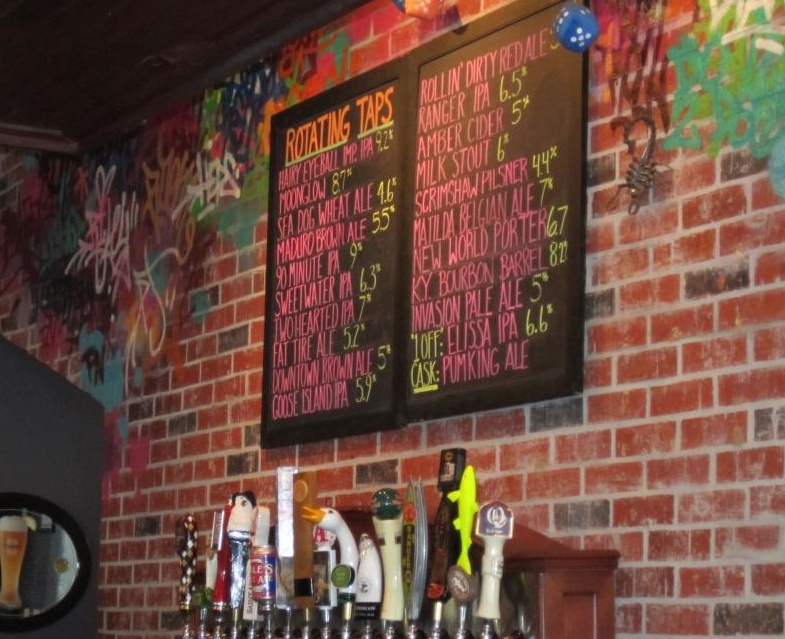 ROTATING TAPS
HAIRY EYEBALL IMP. IPA 9.2%
MOONGLOW 8.7%
SEA DOG WHEAT ALE 4.6%
MADURO BROWN ALE 5.5%
90 MINUTE IPA 9%
SWEETWATER IPA 6.3%
TWO HEARTED IPA 7%
FAT TIRE ALE 5.2%
DOWNTOWN BROWN ALE 5%
GOOSE ISLAND IPA 5.9%
ROLLIN' DIRTY RED ALE
RANGER IPA 6.5%
AMBER CIDER 5%
MILK STOUT 6%
SCRIMSHAW PILSNER 4.4%
MATILDA BELGIAN ALE 7%
NEW WORLD PORTER 6.7
KY. BOURBON BARREL 8.2%
INVASION PALE ALE 5%
"1 OFF": ELISSA IPA 6.6%
CASK: PUMKING ALE